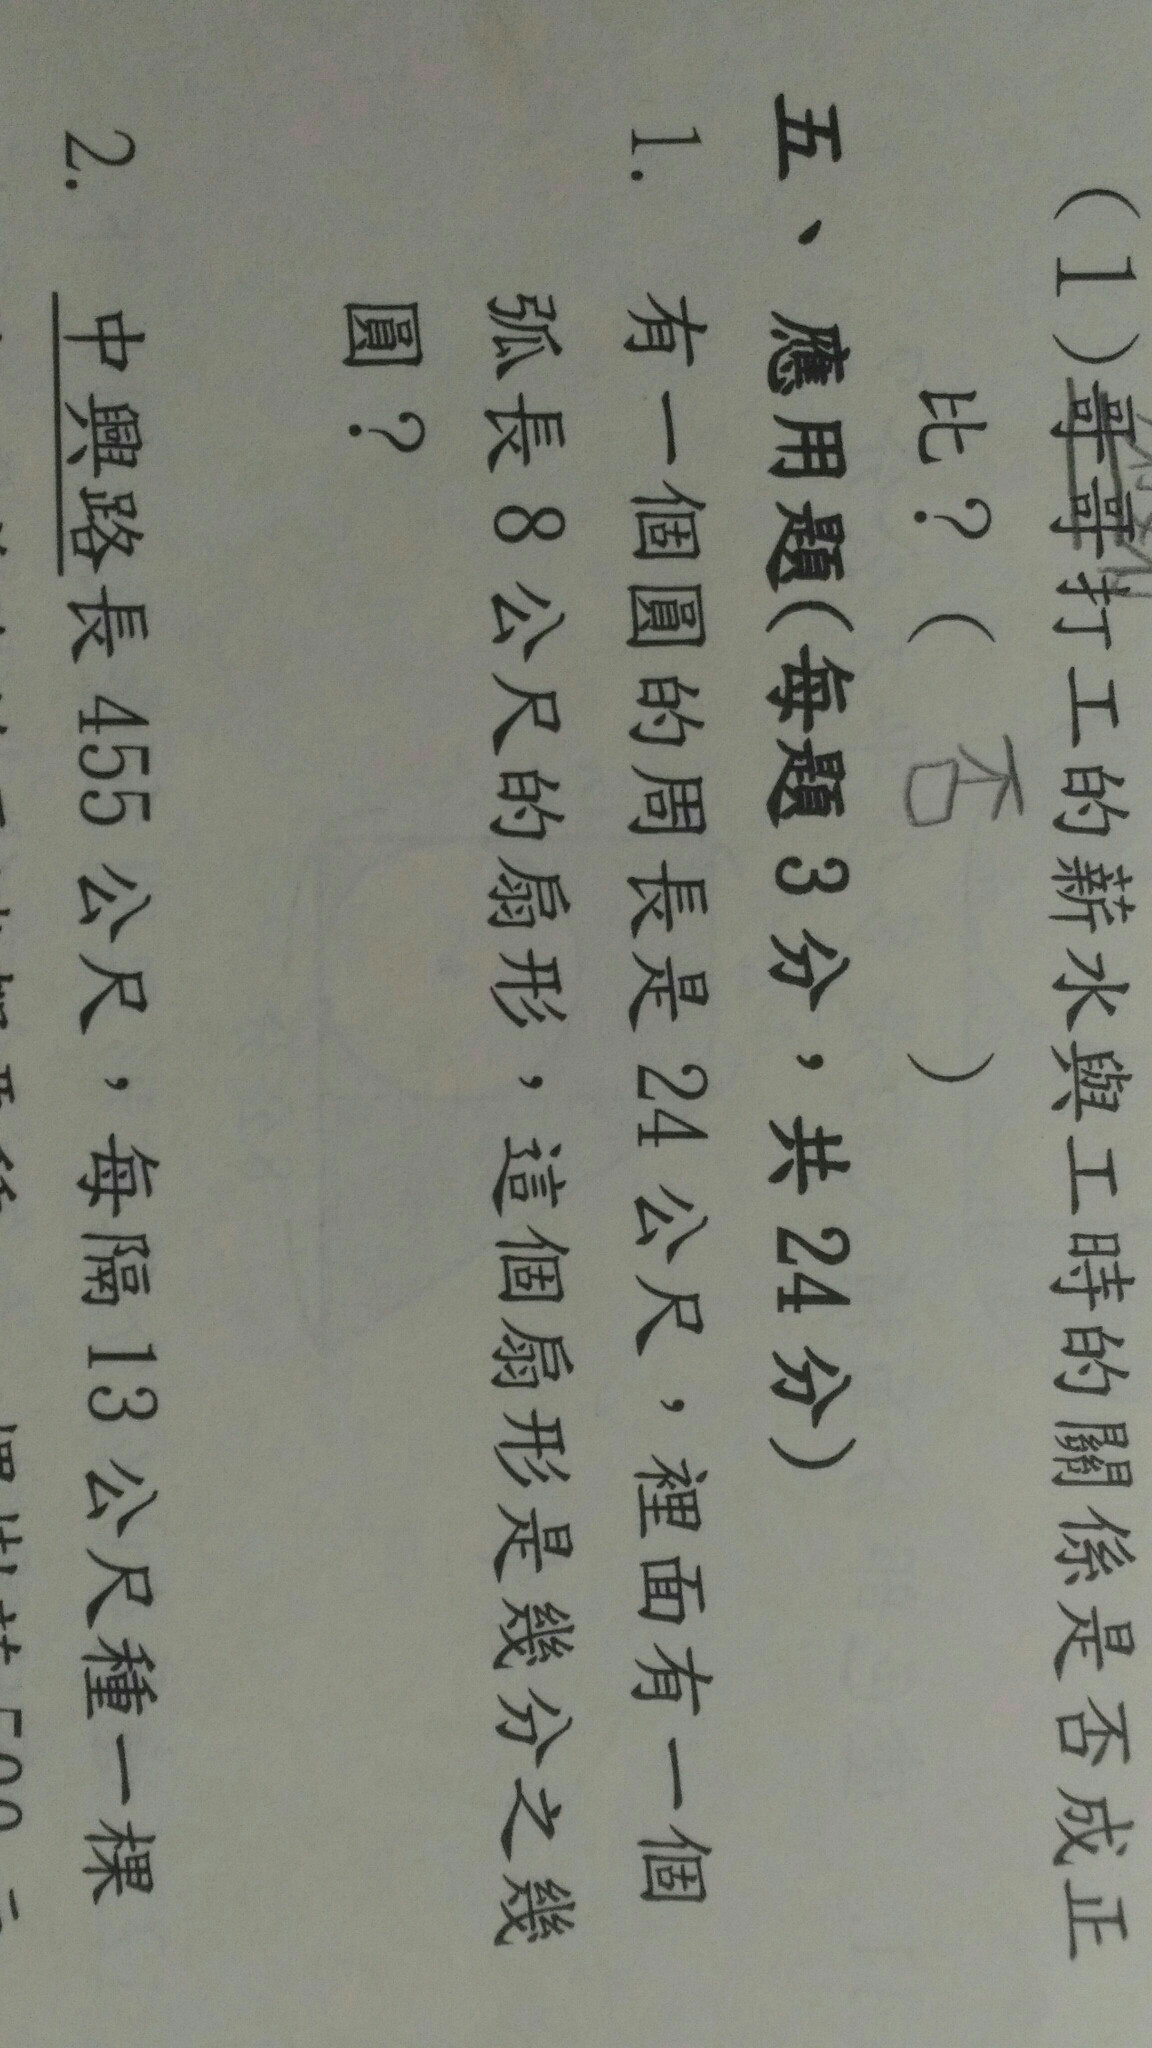 (1)哥哥打工的薪水與工時的關係是否成正
比？( 否 )
五、應用題(每題3分，共24分)
1. 有一個圓的周長是24公尺，裡面有一個
弧長8公尺的扇形，這個扇形是幾分之幾
圓？
2. 中興路長455公尺，每隔13公尺種一棵